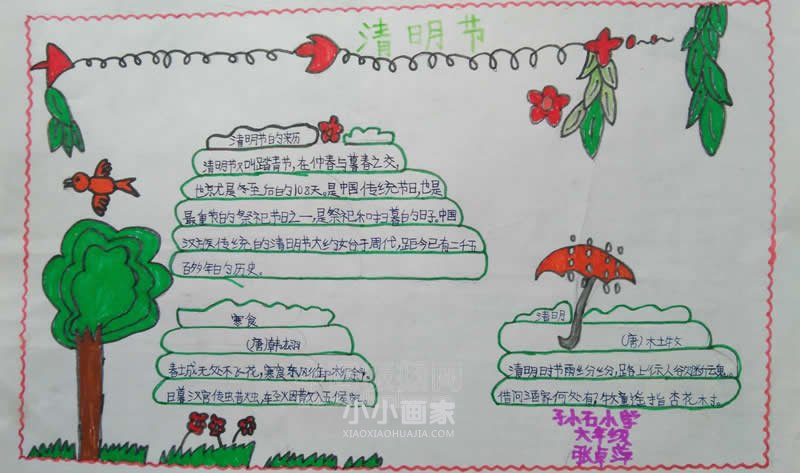 清明节
清明节的来历
清明节又叫踏青节,在仲春与暮春之交,
也就是冬至后的108天。是中国传统节日,也是
最重要的祭祀节日之一,是祭祀和扫墓的日子。中国
汉族传统的清明节大约始于周代,距今已有二千五
百多年的历史。
寒食
(唐)韩翃
春城无处不飞花,寒食东风
日暮汉宫传
清明
(唐)杜牧
清明时节雨纷纷,路上行人欲断魂。
借问酒家何处有 牧童遥指杏花村。
小石小学
六年级
张卓
小小画家
XIAOXIAOHUAJIA.COM